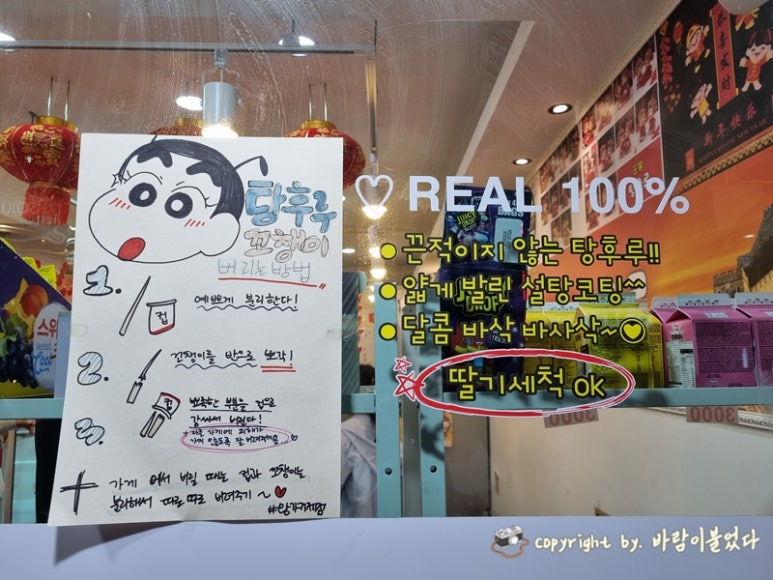 탕후루
꼬챙이
버리는 방법
1.
컵
예쁘게 분리한다!
2.
꼬챙이를 반으로 뽀각!
3.
컵
뾰족한 부분을 컵으로
감싸서 버린다!
가게 에서 버릴 때는 컵과 꼬챙이는
분리해서 따로 따로 버려주기 ~
♡ REAL 100%
끈적이지 않는 탕후루!!
얇게 발린 설탕코팅^^
달콤 바삭 바사삭~♥
딸기세척 OK
3000
3000
恭喜發財
新年快乐
HAPPY CHINESE NEW YEAR
JUICY DROP
BAGS
copyright by. 바람이불었다